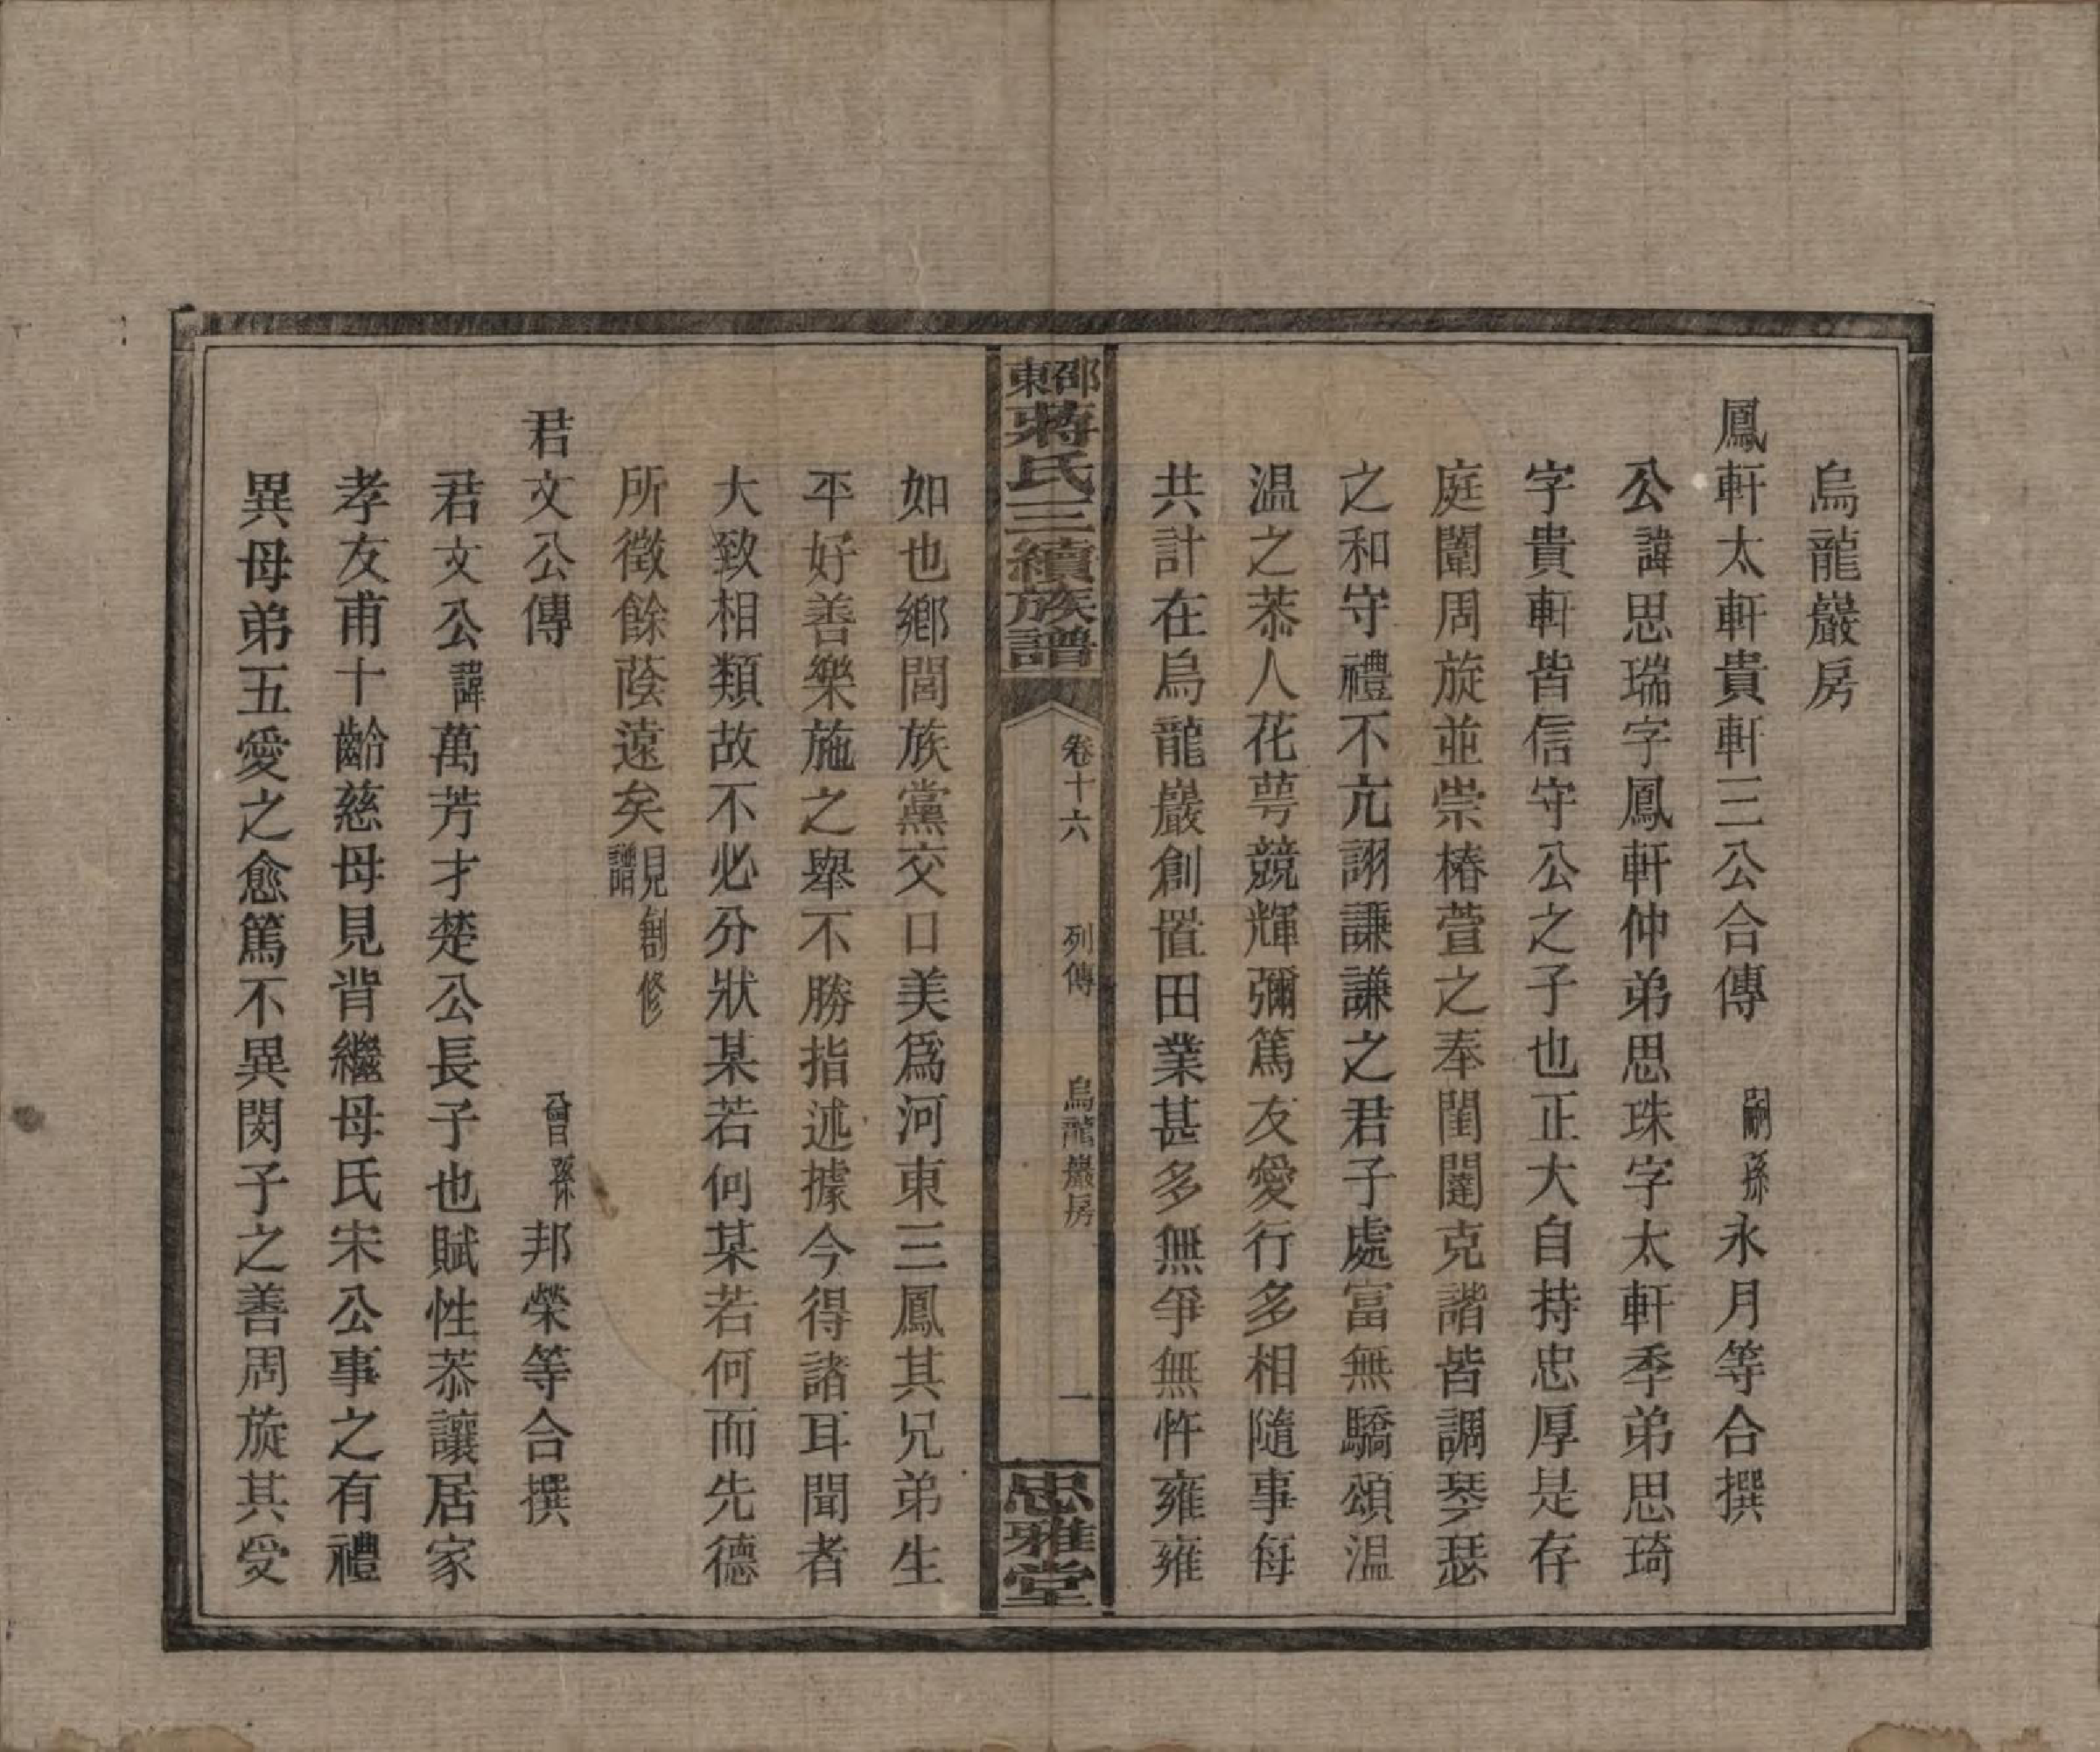 烏龍巖房
鳳軒太軒貴軒三公合傳 嗣孫永月等合撰
公諱思瑞字鳳軒仲弟思珠字太軒季弟思琦
字貴軒皆信守公之子也正大自持忠厚是存
庭闈周旋並崇椿萱之奉閨闥克諧皆調琴瑟
之和守禮不亢詡謙謙之君子處富無驕頌温
温之恭人花萼競輝彌篤友愛行多相隨事每
共計在烏龍巖創置田業甚多無爭無忤雍雍
邵東蔣氏三續族譜 卷十六 列傳 烏龍巖房 一 忠雅堂
如也鄉閭族黨交口美爲河東三鳳其兄弟生
平好善樂施之舉不勝指述據今得諸耳聞者
大致相類故不必分狀某若何某若何而先德
所徵餘蔭遠矣見創修譜
君文公傳 曾孫邦榮等合撰
君文公諱萬芳才楚公長子也賦性恭讓居家
孝友甫十齡慈母見背繼母氏宋公事之有禮
異母弟五愛之愈篤不異閔子之善周旋其受